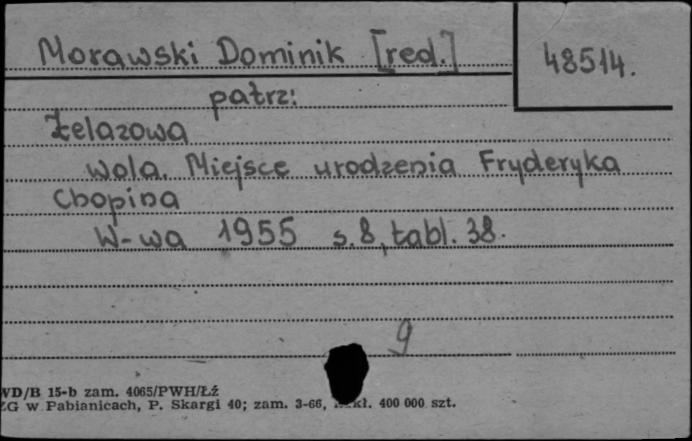 Morawski Dominik [red.]
48514.
patrz:
Żelazowa
Wola. Miejsce urodzenia Fryderyka
Chopina
W-wa 1955 s.8, tabl. 38.
9
WD/B 15-b zam. 4065/PWH/Łź
ZG w Pabianicach, P. Skargi 40; zam. 3-66, 400 000 szt.